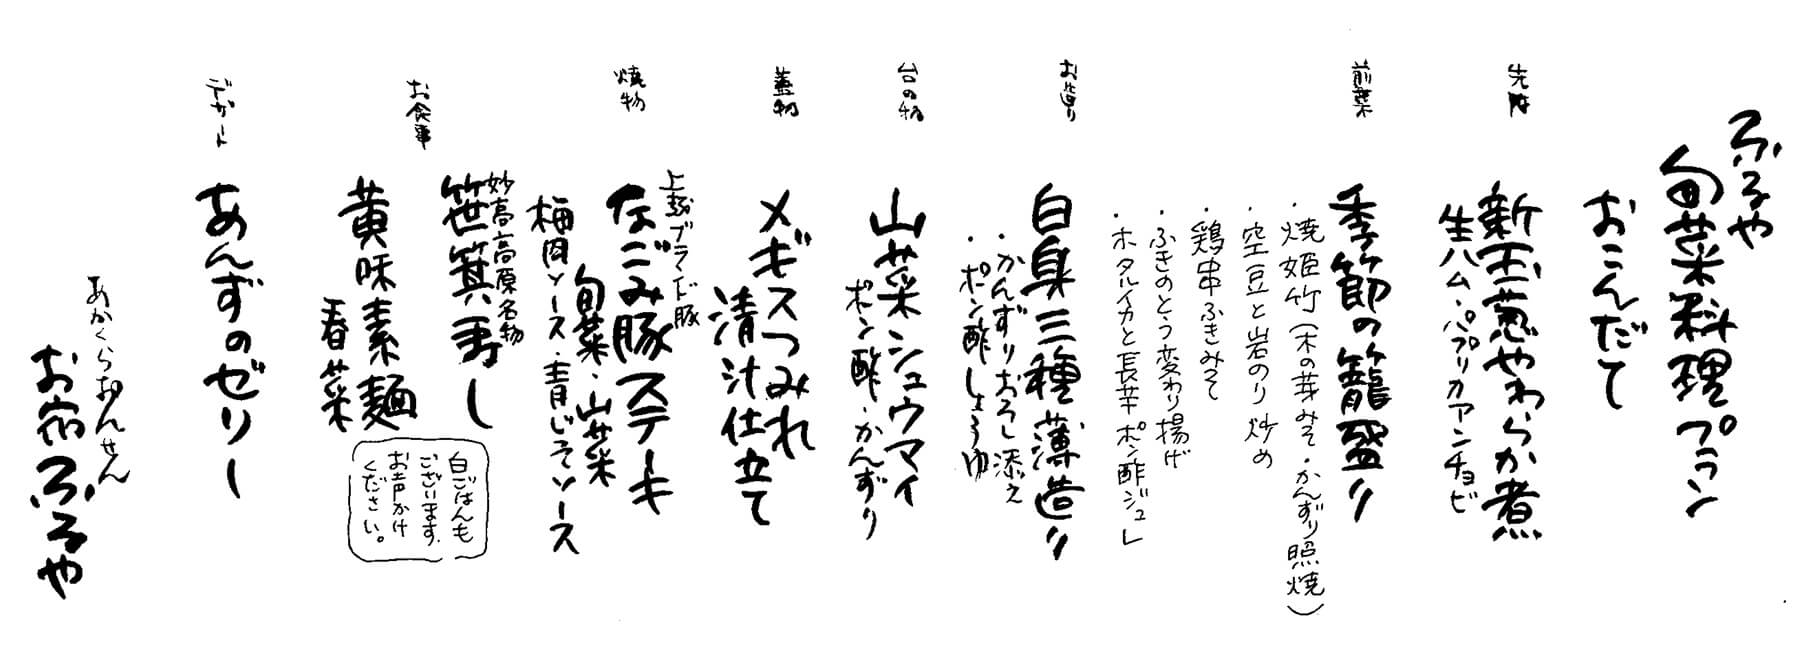 ふるや
旬菜料理プラン
おこんだて
先附
新玉葱やわらか煮
生ハム・パプリカアンチョビ
前菜
季節の籠盛り
・焼姫竹(木の芽みそ・かんずり照焼)
・空豆と岩のり炒め
・鶏串ふきみそ
・ふきのとう変わり揚げ
・ホタルイカと長芋ポン酢ジュレ
お造り
白身三種薄造り
・かんずりおろし添え
・ポン酢しょうゆ
台の物
山菜シュウマイ
ポン酢・かんずり
蓋物
メギスつみれ
清汁仕立て
焼物
上越ブランド豚
なごみ豚ステーキ
旬菜・山菜
梅肉ソース・青じそソース
お食事
妙高高原名物
笹箕寿し
黄味素麺
春菜
白ごはんも
ございます。
お声かけ
ください。
デザート
あんずのゼリー
あかくらおんせん
お宿ふるや